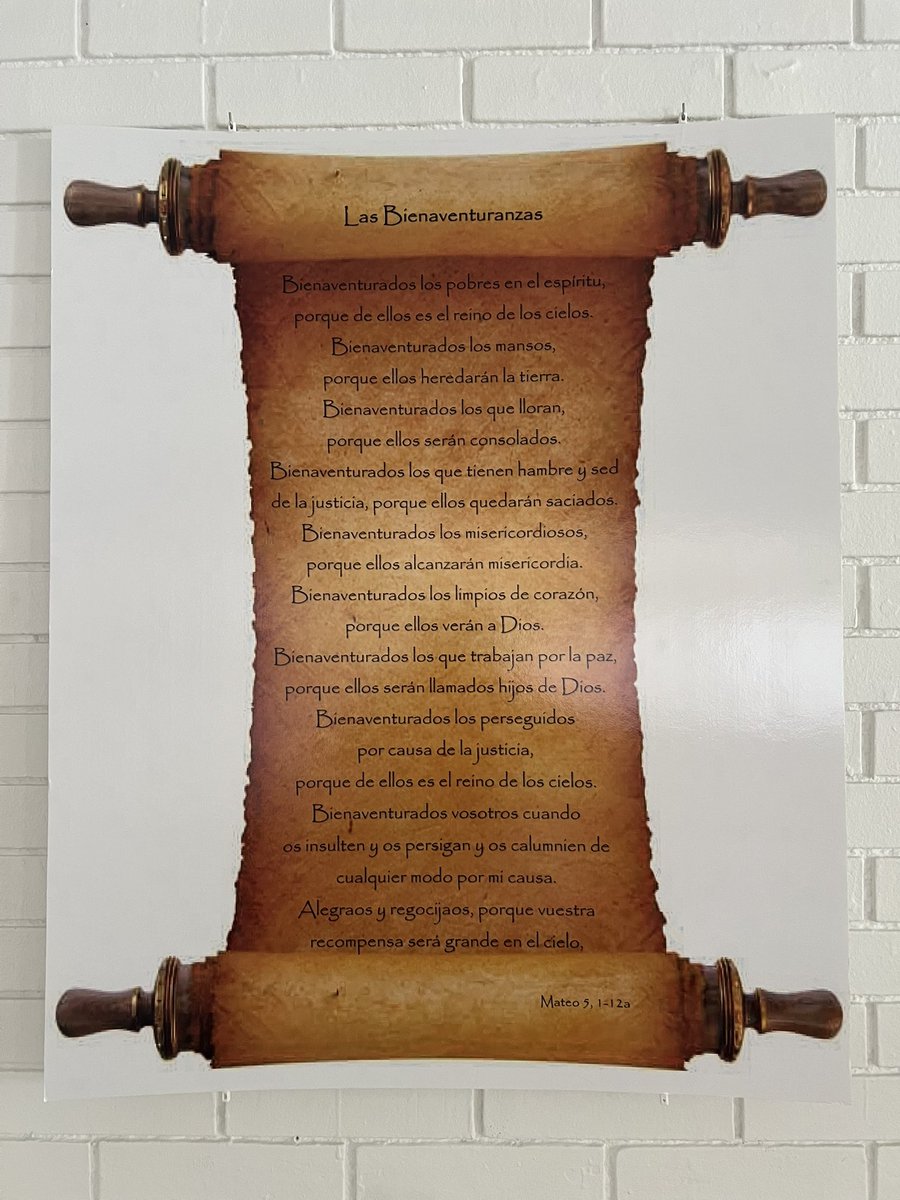 Las Bienaventuranzas
Bienaventurados los pobres en el espíritu,
porque de ellos es el reino de los cielos.
Bienaventurados los mansos,
porque ellos heredarán la tierra.
Bienaventurados los que lloran,
porque ellos serán consolados.
Bienaventurados los que tienen hambre y sed
de la justicia, porque ellos quedarán saciados.
Bienaventurados los misericordiosos,
porque ellos alcanzarán misericordia.
Bienaventurados los limpios de corazón,
porque ellos verán a Dios.
Bienaventurados los que trabajan por la paz,
porque ellos serán llamados hijos de Dios.
Bienaventurados los perseguidos
por causa de la justicia,
porque de ellos es el reino de los cielos.
Bienaventurados vosotros cuando
os insulten y os persigan y os calumnien de
cualquier modo por mi causa.
Alegraos y regocijaos, porque vuestra
recompensa será grande en el cielo,
Mateo 5, 1-12a